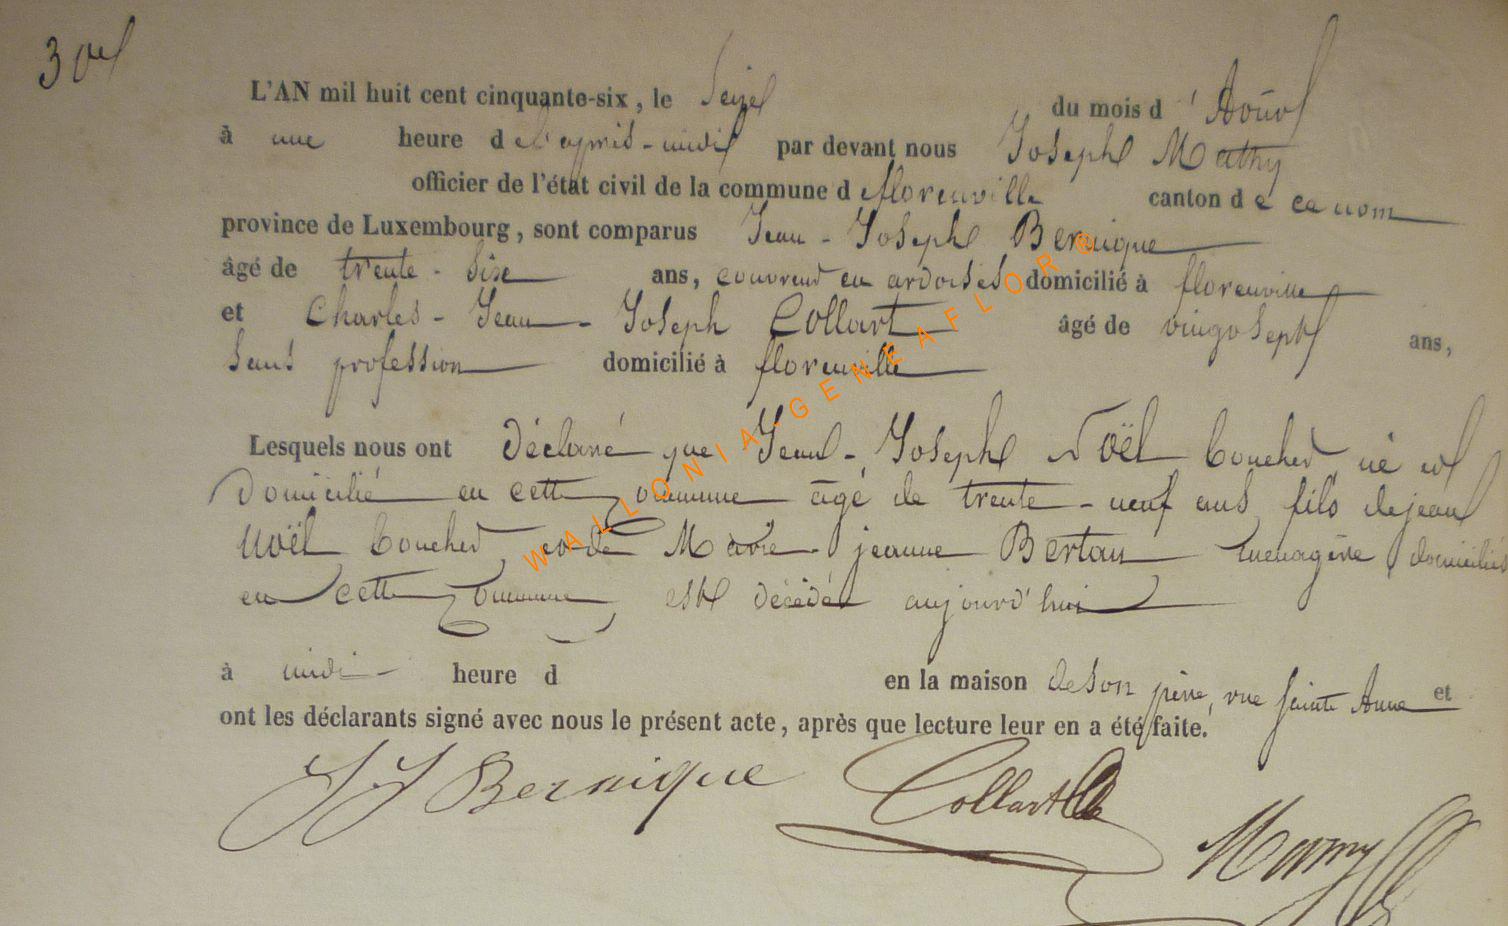 L'AN mil huit cent cinquante-six, le Seize du mois d'Août
à une heure de l'après-midi par devant nous Joseph Mathy
officier de l'état civil de la commune de florenville canton de ce nom
province de Luxembourg, sont comparus Jean-Joseph Bernique
âgé de trente-six ans, couvreur en ardoises domicilié à florenville
et Charles-Jean-Joseph Collart âgé de vingt sept ans,
sans profession domicilié à florenville
Lesquels nous ont déclaré que Jean-Joseph Noël Boucher, né et
domicilié en cette commune âgé de trente-neuf ans, fils de jean
Noël Boucher, et de Marie jeanne Bertau ménagère domiciliés
en cette commune, est décédé aujourd'hui
à midi heure d en la maison de son père, rue sainte Anne et
ont les déclarants signé avec nous le présent acte, après que lecture leur en a été faite.
JJ Bernique Collart Mathy
WALLONIA-GENEAFLORE